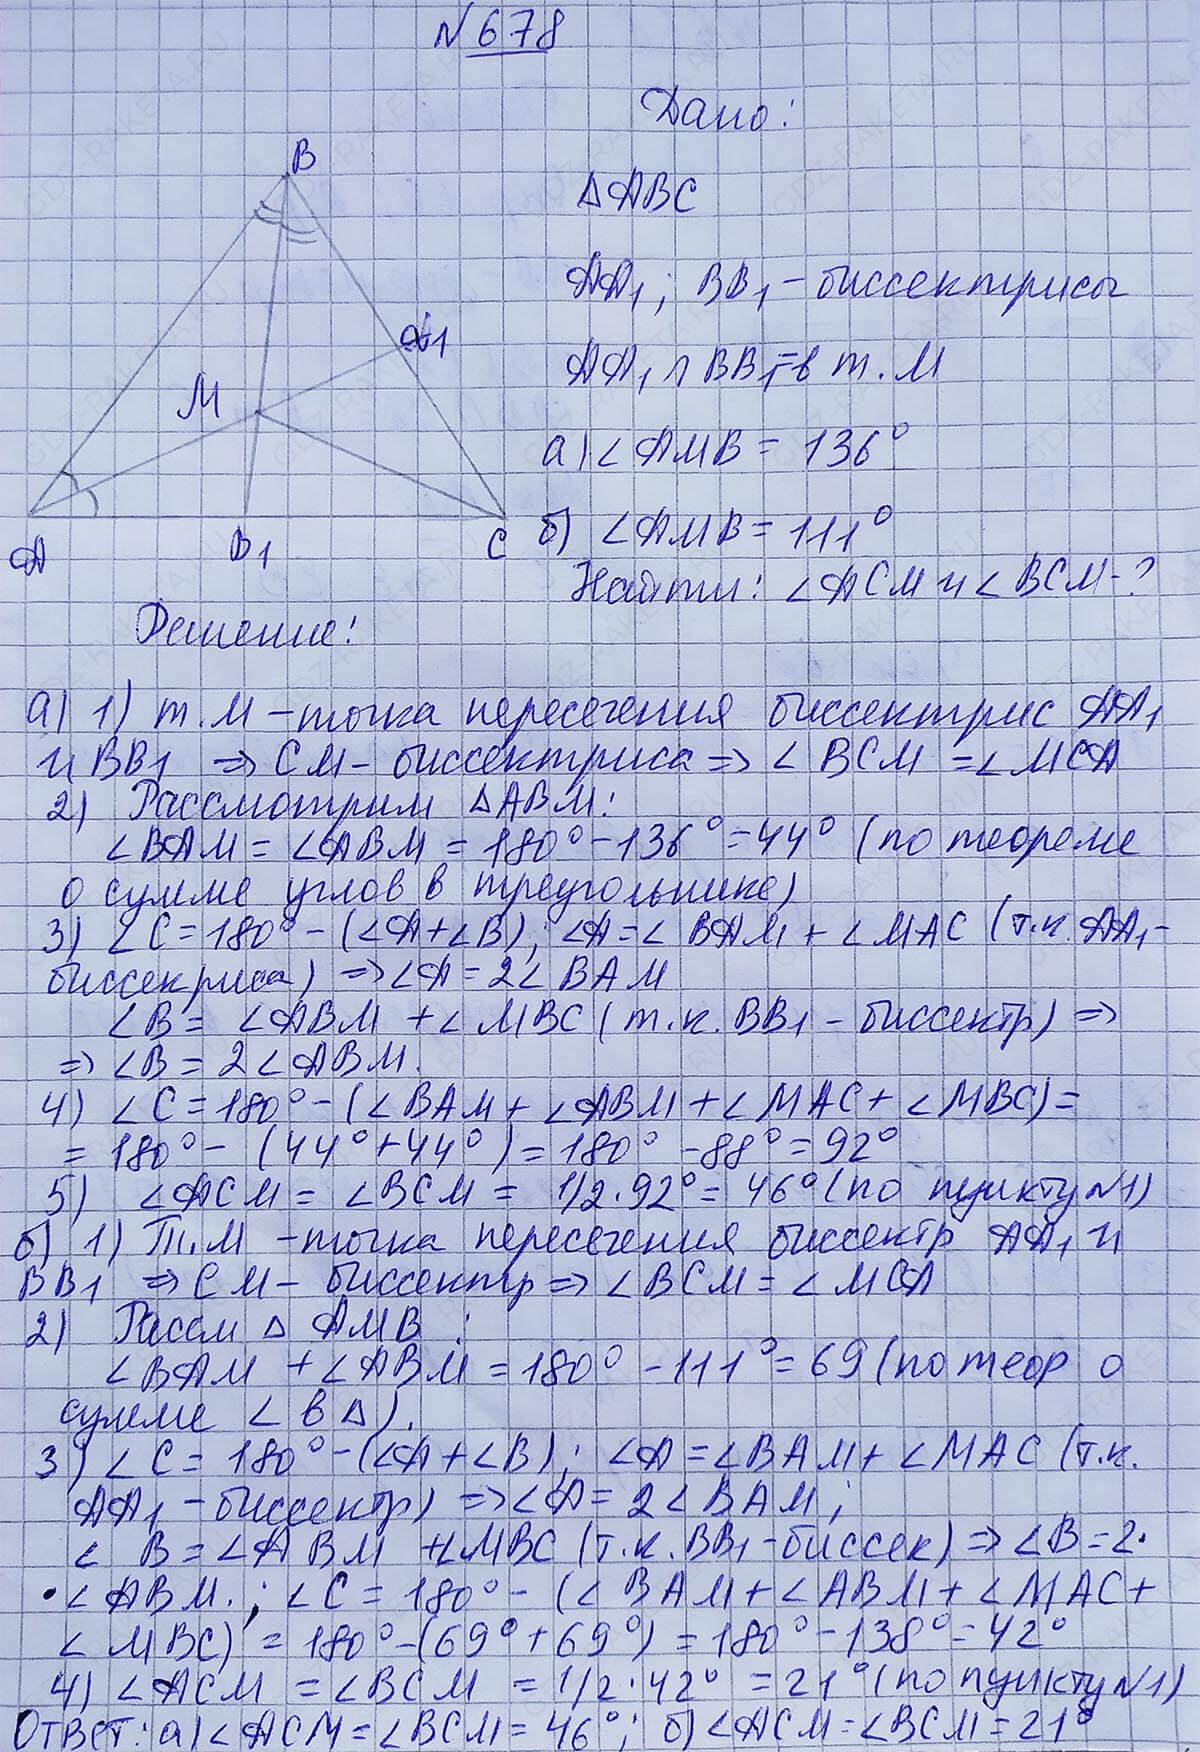 №678
Дано:
△ABC
AA₁; BB₁ - биссектрисы
AA₁ ∩ BB₁ = в т. М
а) ∠AMB = 136°
б) ∠AMB = 111°
Найти: ∠ACM и ∠BCM - ?
B
A1
M
A
B1
C
Решение:
а) 1) т. М - точка пересечения биссектрис AA₁
и BB1 => CM - биссектриса => ∠BCM = ∠MCA
2) Рассмотрим △ABM:
∠BAM = ∠ABM = 180° - 136° = 44° (по теореме
о сумме углов в треугольнике)
3) ∠C = 180° - (∠A + ∠B); ∠A = ∠BAM + ∠MAC (т.к. AA₁ -
биссекриса) => ∠A = 2∠BAM
∠B = ∠ABM + ∠MBC (т.к. BB₁ - биссектр) =>
=> ∠B = 2∠ABM.
4) ∠C = 180° - (∠BAM + ∠ABM + ∠MAC + ∠MBC) =
= 180° - (44° + 44°) = 180° - 88° = 92°
5) ∠ACM = ∠BCM = 1/2 · 92° = 46° (по пункту №1)
б) 1) Т. М - точка пересечения биссектр AA₁ и
BB1 => CM - биссектр => ∠BCM = ∠MCA
2) Рассм △ AMB :
∠BAM + ∠ABM = 180° - 111° = 69 (по теор о
сумме ∠ в △).
3) ∠C = 180° - (∠A + ∠B); ∠A = ∠BAM + ∠MAC (т.к.
AA₁ - биссектр) => ∠A = 2∠BAM;
∠B = ∠ABM + ∠MBC (т.к. BB₁ - биссек) => ∠B = 2·
·∠ABM.; ∠C = 180° - (∠BAM + ∠ABM + ∠MAC +
∠MBC) = 180° - (69° + 69°) = 180° - 138° = 42°
4) ∠ACM = ∠BCM = 1/2 · 42° = 21° (по пункту №1)
Ответ: а) ∠ACM = ∠BCM = 46°; б) ∠ACM = ∠BCM = 21°